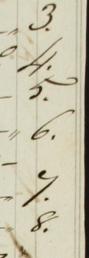 3.
4.
5.
6.
7.
8.